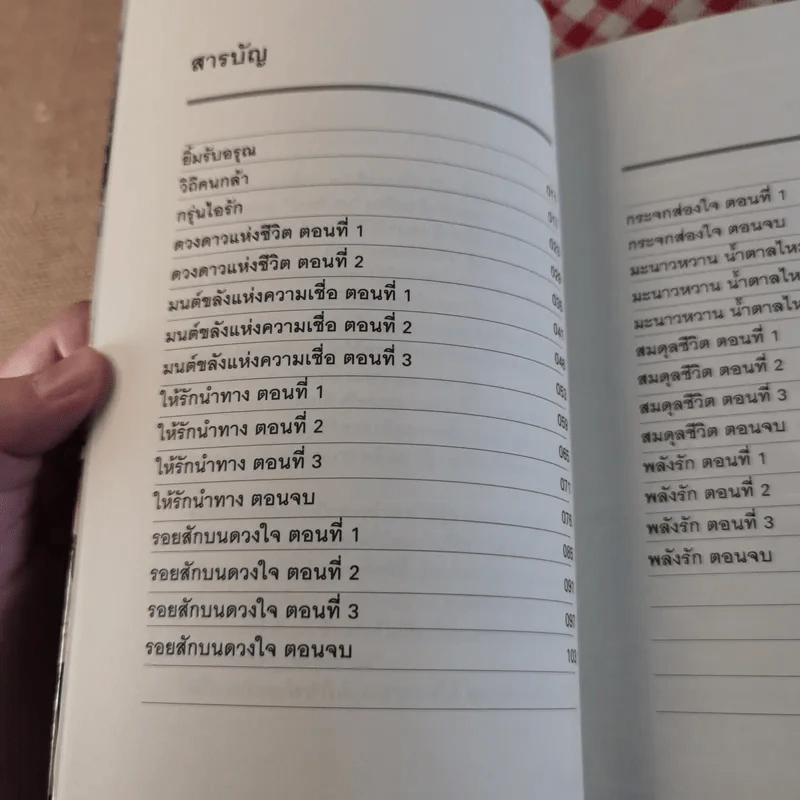 สารบัญ
ยิ้มรับอรุณ
วิถีคนกล้า
กรุ่นไอรัก
ดวงดาวแห่งชีวิต ตอนที่ 1 029
ดวงดาวแห่งชีวิต ตอนที่ 2
มนต์ขลังแห่งความเชื่อ ตอนที่ 1 041
มนต์ขลังแห่งความเชื่อ ตอนที่ 2
มนต์ขลังแห่งความเชื่อ ตอนที่ 3 053
ให้รักนำทาง ตอนที่ 1 059
ให้รักนำทาง ตอนที่ 2 065
ให้รักนำทาง ตอนที่ 3 071
ให้รักนำทาง ตอนจบ
รอยสักบนดวงใจ ตอนที่ 1 085
รอยสักบนดวงใจ ตอนที่ 2 091
รอยสักบนดวงใจ ตอนที่ 3 097
รอยสักบนดวงใจ ตอนจบ 103
กระจกส่องใจ ตอนที่ 1
กระจกส่องใจ ตอนจบ
มะนาวหวาน น้ำตาลไหม
มะนาวหวาน น้ำตาลไหม
มะนาวหวาน น้ำตาลไห
สมดุลชีวิต ตอนที่ 1
สมดุลชีวิต ตอนที่ 2
สมดุลชีวิต ตอนที่ 3
สมดุลชีวิต ตอนจบ
พลังรัก ตอนที่ 1
พลังรัก ตอนที่ 2
พลังรัก ตอนที่ 3
พลังรัก ตอนจบ